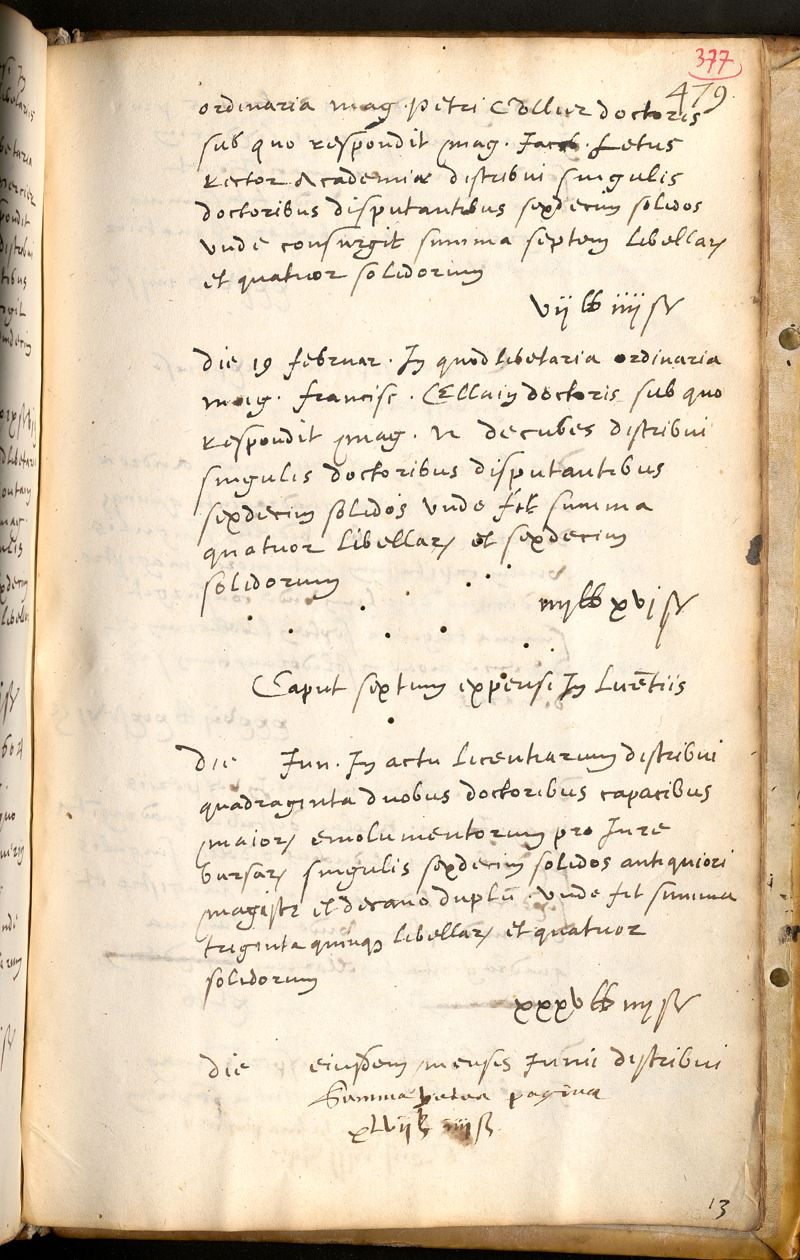 377
479
ordinaria mag. Petri Collier doctoris
sub quo respondit mag. Jacob. Letus
Rector Academiae distribui singulis
doctoribus disputantibus sexdecim solidos
unde consurgit summa septem libellar,
et quatuor solidorum
vij lb iiij s
die 19 februar. In quodlibetaria ordinaria
mag. francisc. Cellaij doctoris sub quo
respondit mag. N decubes distribui
singulis doctoribus disputantibus
sexdecim solidos unde fit summa
quatuor libellar, et sexdecim
solidorum
iiij lb xvj s
Caput sextum expensi In Licētiis
die Jun. In actu licentiarum distribui
quadraginta duobus doctoribus capacibus
maior, emolumentorum pro Jure
bursar, singulis sexdecim solidos antiquiori
magistr et decano duplū. unde fit summa
triginta quinq, libellar, et quatuor
solidorum
xxxv lb iiij s
die eiusdem mensis Junii distribui
Summa pagina
xlvij lb iiij s
13